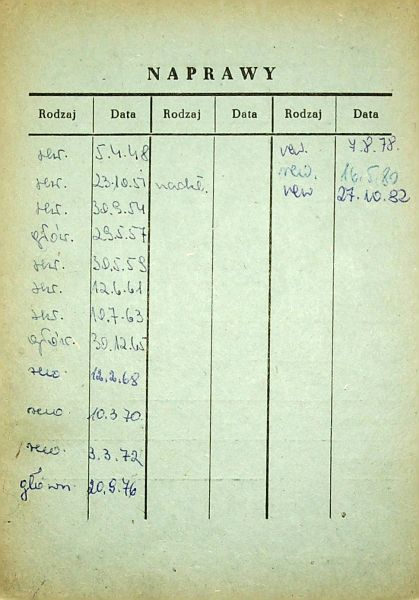 NAPRAWY
Rodzaj Data Rodzaj Data Rodzaj Data
rew. 5.4.48 rew. 7.8.78
rew. 23.10.51 rew. 16.5.80
rew. 30.9.54 rew 27.10.82
głów. 29.5.57
rew. 30.5.59
rew. 12.6.61
rew. 10.7.63
głów. 30.12.65
rew. 12.2.68
rew. 10.3.70
rew. 3.3.72
główn. 20.9.76